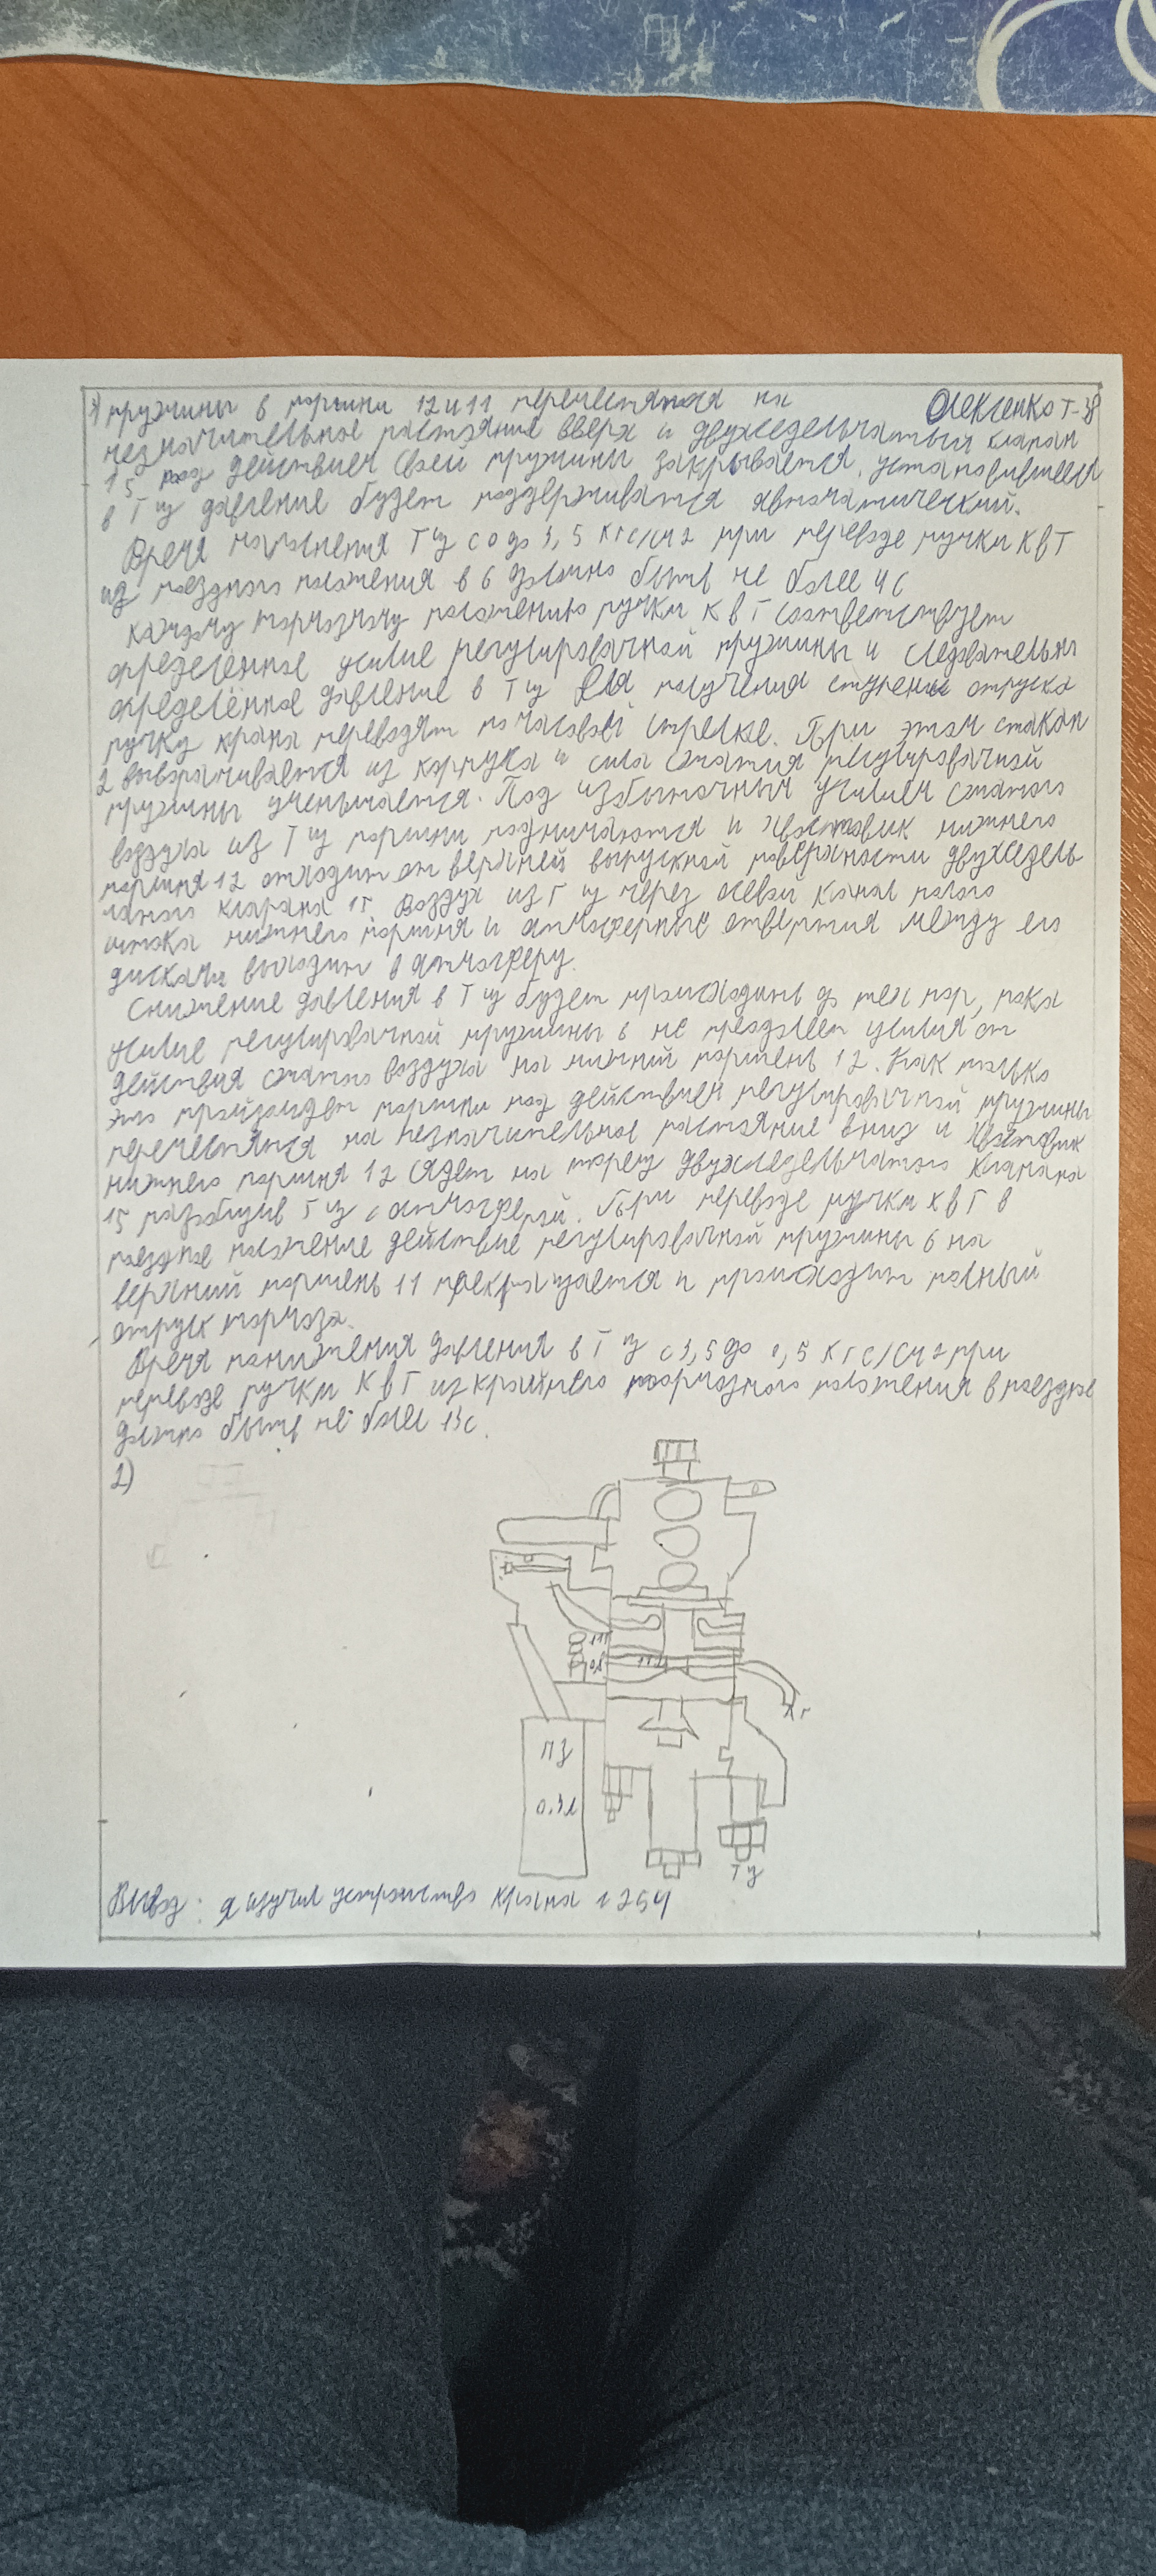 пружины 6 поршни 12 и 11 переместятся на Олексенко Т-38
незначительное растояние вверх и двухседельчатый клапан
15 под действием своей пружины закрывается. установившееся
в Тц давление будет поддерживатся автоматический.
Время наполнения Тц с 0 до 3,5 кгс/см2 при переводе ручки КвТ
из поездного положения в 6 должно быть не более 4с
каждому тормозному положению ручки КвТ соответствует
определенное усилие регулировочной пружины и следовательн
определенное давление в Тц Для получения ступени отпуска
ручку крана переводят по часовой стрелке. При этом стакан
2 выворачивается из корпуса и сила сжатия регулировочной
пружины уменьшается. Под избыточным усилием сжатого
воздуха из Тц поршни поднимаются и хвостовик нижнего
поршня 12 отходит от верхней выпускной поверхности двухседель
чатого клапана 15. Воздух из Тц через осевой канал полого
штока нижнего поршня и атмосферные отверстия между его
дисками выходит в атмосферу.
Снижение давления в Тц будет происходить до тех пор, пока
усилие регулировочной пружины 6 не преодолеет усилия от
действия сжатого воздуха на нижний поршень 12. Как только
это произойдет поршни под действием регулировочной пружины
переместятся на незначительное растояние вниз и хвостовик
нижнего поршня 12 сядет на торец двухседельчатого клапана
15 разобщив Тц с атмосферой. При переводе ручки КвТ в
поездное положение действие регулировочной пружины 6 на
верхний поршень 11 прекращается и происходит полный
отпуск тормоза.
Время понижения давления в Тц с 3,5 до 0,5 кгс/см2 при
переводе ручки КвТ из крайнего тормозного положения в поездное
должно быть не более 13с.
2)
ПЗ
0.3л
Тц
Вывод: я изучил устройство крана 1 254